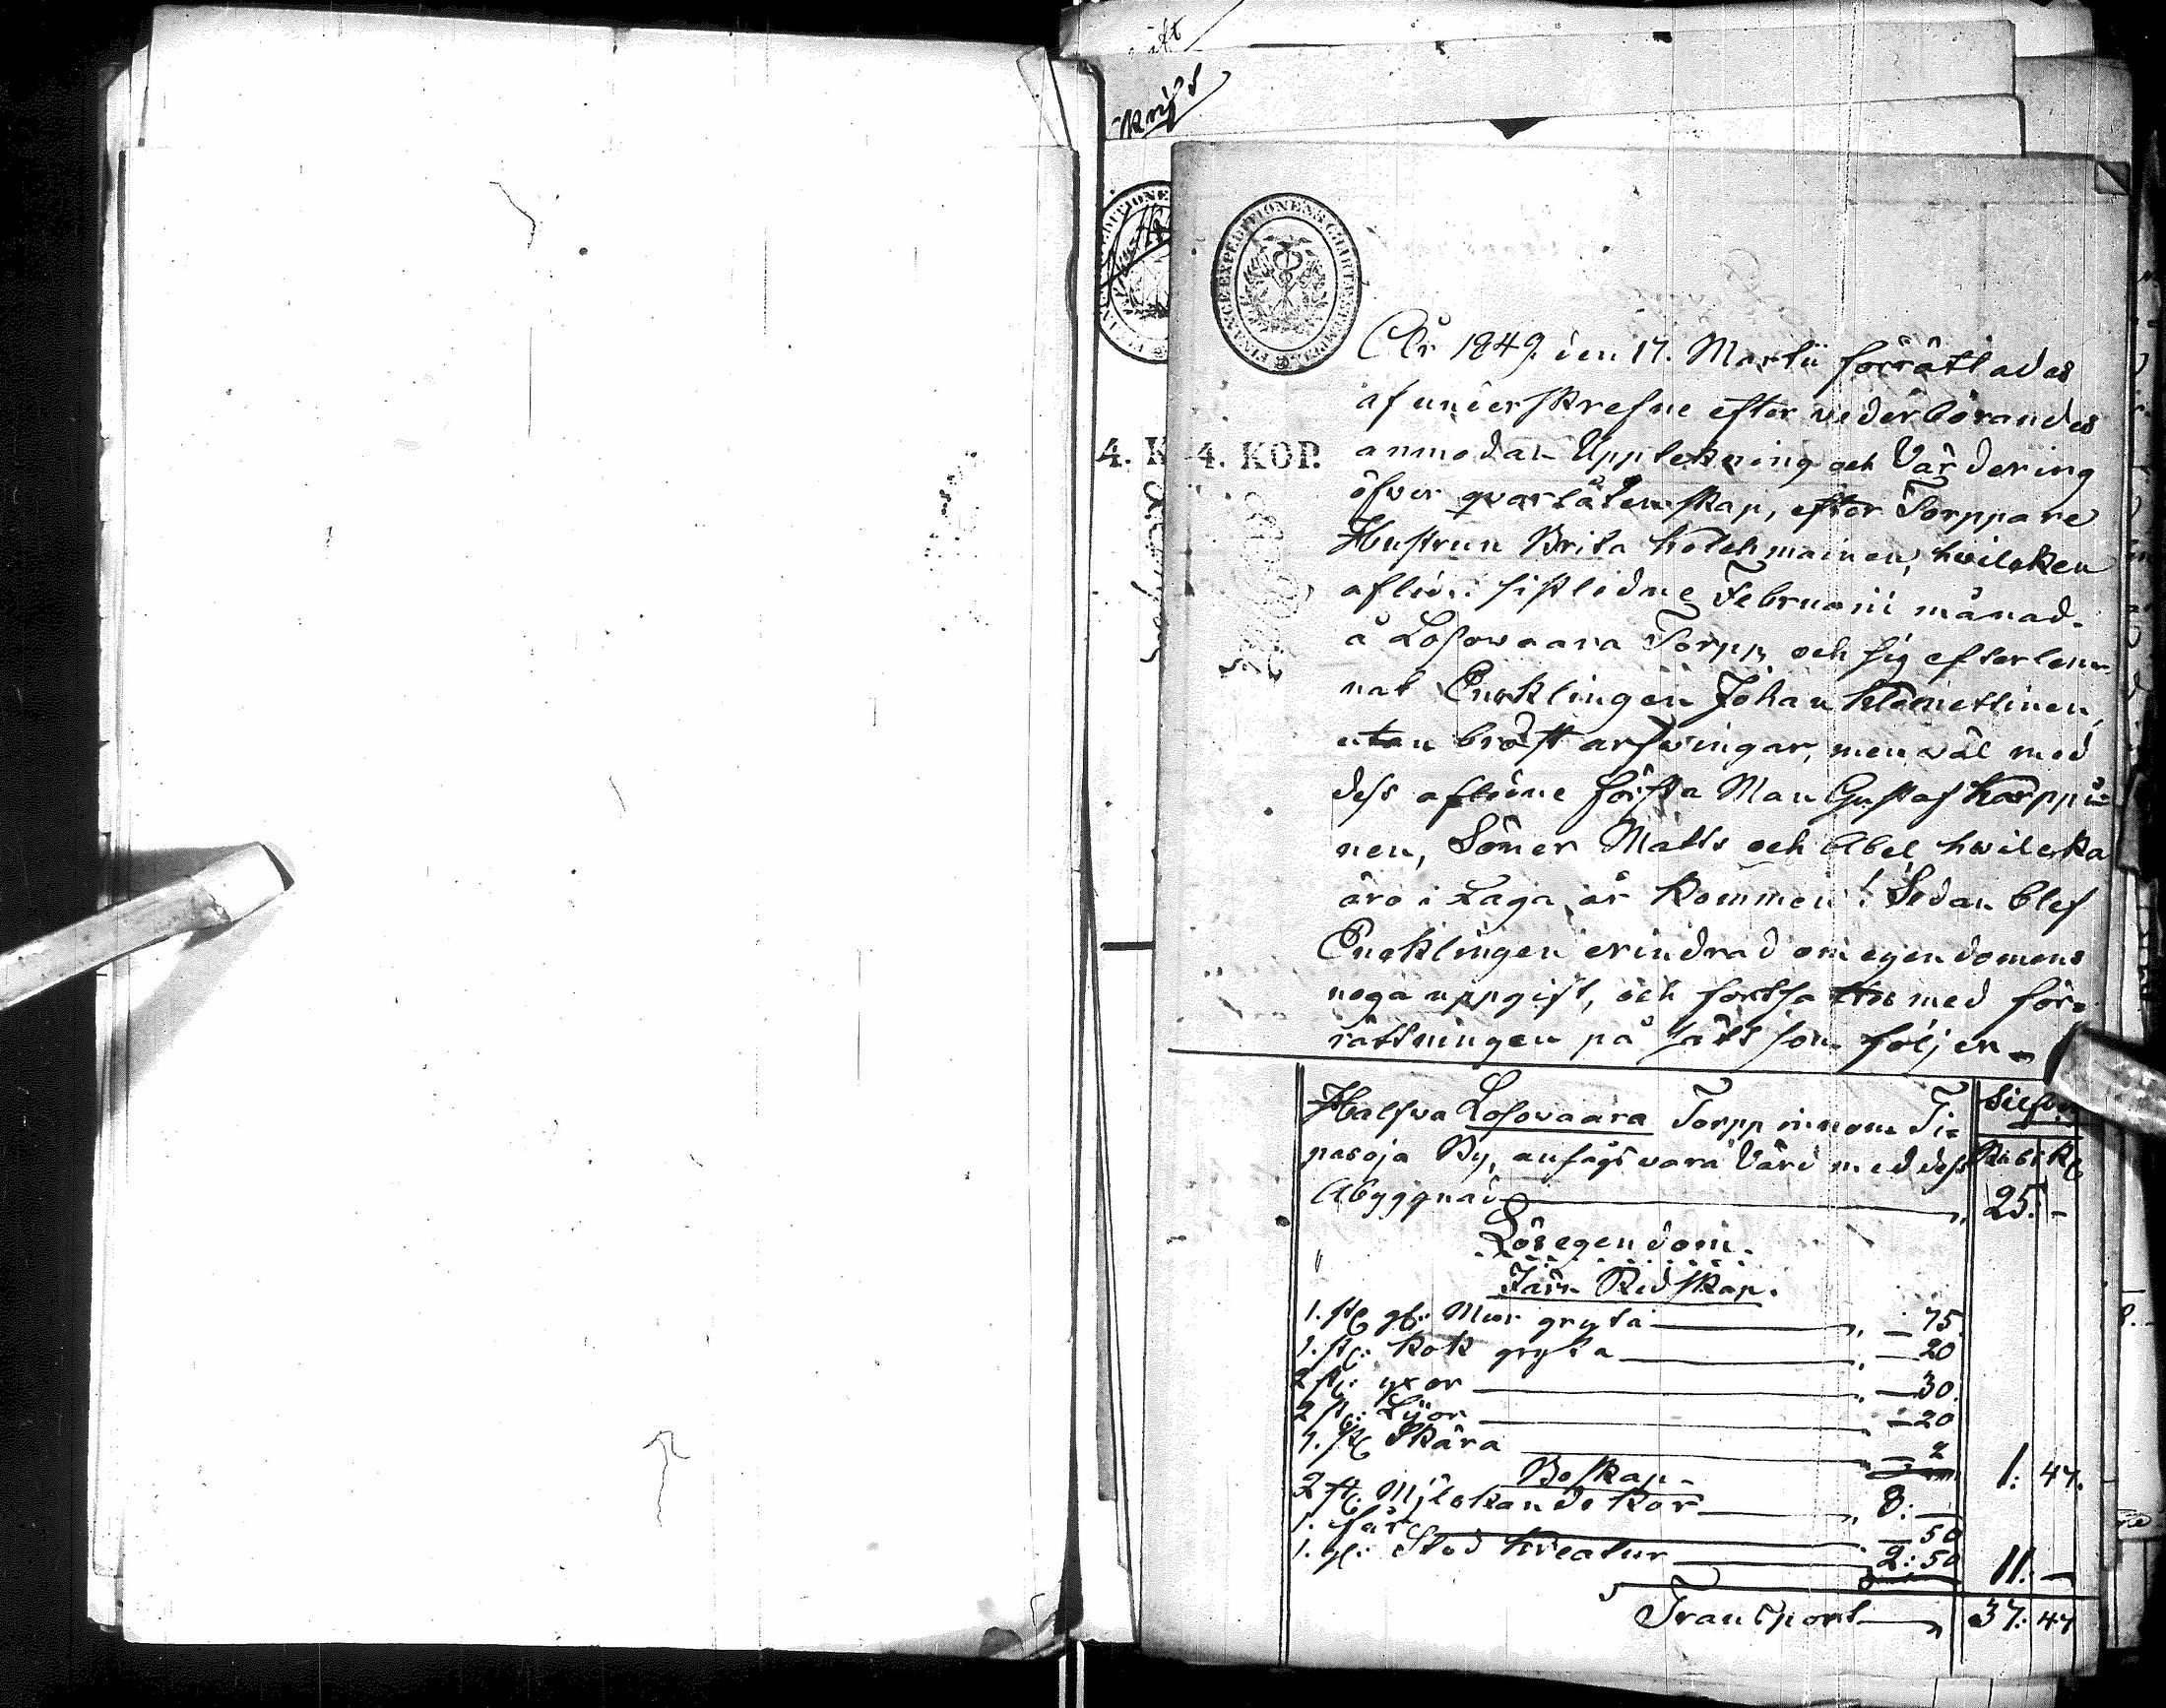 krift
FINANCE EXPEDITIONENS CHARTÆ STEMPEL
4. K
4. KOP.
År 1849. den 17. Martii förrättades
af underskrefne efter vederbörandes
anmodan Upptekning och Värdering
öfver qvarlåtenskap, efter Torppare
Hustrun Brita Kolehmainen, hvilcken
afled. sistledne Februarii månad.
å Losovaara Torpp och sig efterlem-
nat Encklingen Johan Klemettinen,
utan bröst arfvingar, men väl med
dess aflidne första Man Gustaf Karppi=
nen, Söner Matts och Abel hvilcka
äro i laga år Kommen! Sedan blef
Encklingen erindrad om egendomens
noga uppgift, och fortsattes med för=
rättningen på sätt som följer -
Halfva Losovaara Torpp innom Ti=
pasoja By, ansågs vara Värd med dess
Abyggnad 25. -
Silfver
Rub: K
Lösegendom.
Järn Redskap.
1. st. gl: Mur gryta - 75
1. st: Kok gryta - 20
2 st: yxor - 30.
2 st: Lijor - 20
1. st Skära - 2 1. 47.
Boskap -
2 st. Mjölckande Kor 8: -
1. får - 50
1. gl: Stod Kreatur 2: 50 11. -
Transport 37. 47